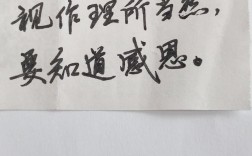 视作理所当然,
要知道感恩。